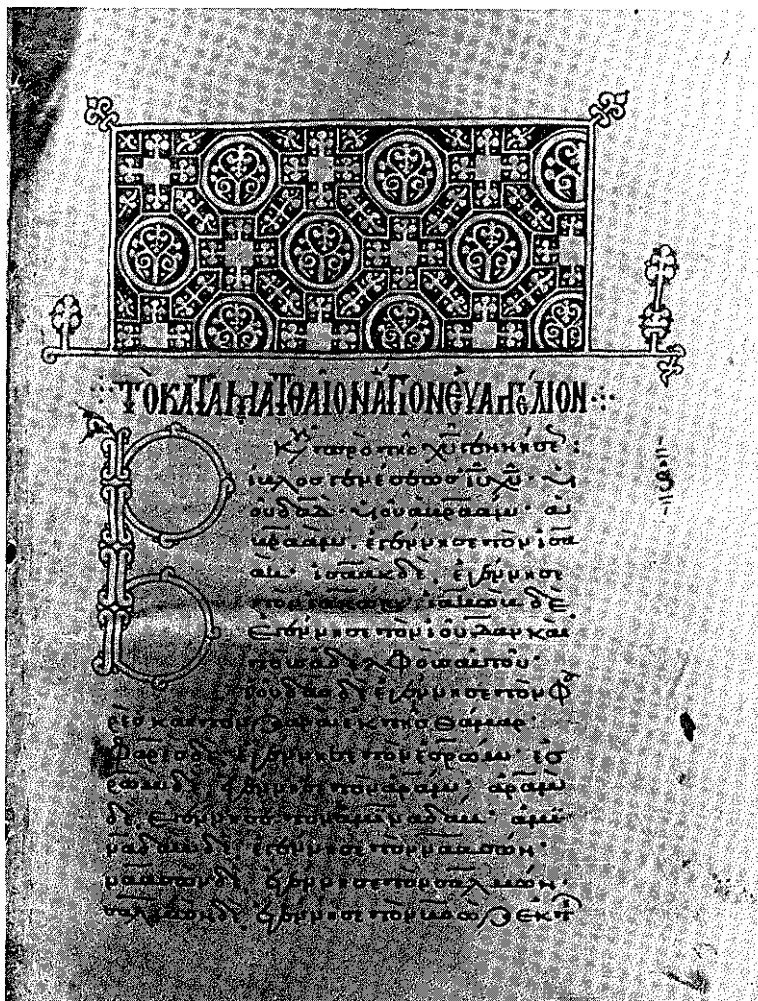 ΤὸΚΑΤΑ ΜΑΤΘΑῖΟΝ ἉΓΙΟΝ ΕΥΑΓΓΕΛΙΟΝ
πρὸ τῆς χῦ γεννήσε:
Βίβλος γενέσεως ἰῦ χῦ· υἱ
οῦ δαδ· υἱοῦ ἀβραάμ· ἀ
βραάμ, ἐγέννησε τὸν ἰσα
άκ· ἰσαὰκ δὲ, ἐγέννησε
τὸν ἰακώβ· ἰακὼβ δὲ ἐ
γέννησε τὸν ἰούδαν καὶ
τοὺς ἀδελφοὺς αὐτοῦ·
ἰούδας δὲ ἐγέννησε τὸν φα
ρὲς καὶ τὸν ζαρὰ ἐκ τῆς θάμαρ·
Φαρὲς δὲ ἐγέννησε τὸν ἐσρώμ· ἐσ
ρὼμ δὲ ἐγέννησε τὸν ἀράμ· ἀρὰμ
δὲ ἐγέννησε τὸν ἀμιναδάμ· ἀμι
ναδὰμ δὲ ἐγέννησε τὸν ναασσών·
ναασσὼν δὲ ἐγέννησε τὸν σαλμών·
σαλμὼν δὲ ἐγέννησε τὸν βοὸζ ἐκ τῆ